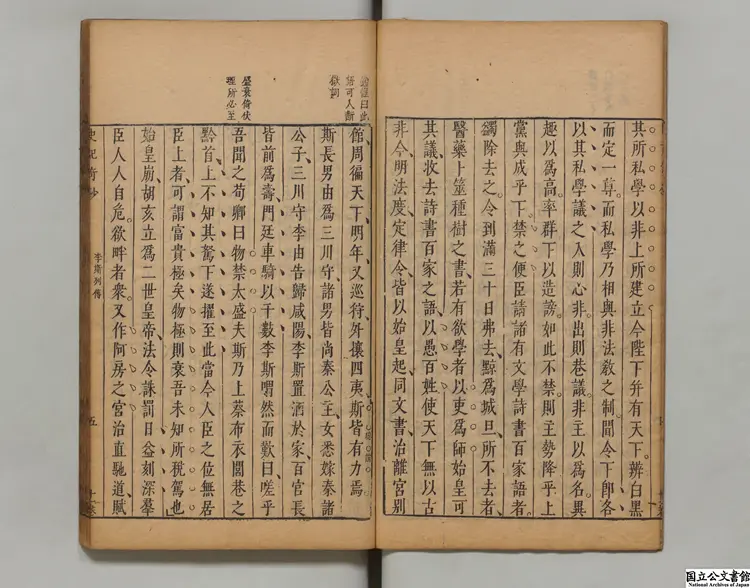 其所私學以非上所建立今陛下并有天下辨白黑
而定一尊而私學乃相與非法敎之制聞令下卽各
以其私學議之入則心非出則巷議非主以爲名異
趣以爲高率群下以造謗如此不禁則主勢降乎上
黨與成乎下禁之便臣請諸有文學詩書百家語者
蠲除去之令到滿三十日弗去黥爲城旦所不去者
醫藥卜筮種樹之書若有欲學者以吏爲師始皇可
其議收去詩書百家之語以愚百姓使天下無以古
非今明法度定律令皆以始皇起同文書治離宮別
曰此
語可入斷
獄詞
盛衰倚伏
理所必至
館周徧天下明年又巡狩外攘四夷斯皆有力焉
斯長男由爲三川守諸男皆尚秦公主女悉嫁秦諸
公子三川守李由告歸咸陽李斯置酒於家百官長
皆前爲壽門廷車騎以千數李斯喟然而歎曰嗟乎
吾聞之荀卿曰物禁太盛夫斯乃上蔡布衣閭巷之
黔首上不知其駑下遂擢至此當今人臣之位無居
臣上者可謂富貴極矣物極則衰吾未知所稅駕也
始皇崩胡亥立爲二世皇帝法令誅罰日益刻深羣
臣人人自危欲畔者衆又作阿房之宮治直馳道賦
史記
李斯列傳
五
國立公文書館
National Archives of Japan